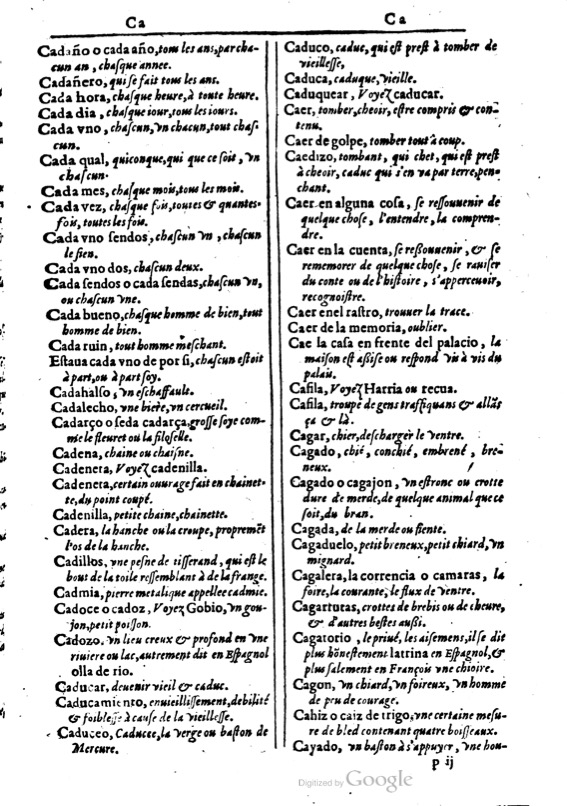 Ca
Cadaño o cada año, tous les ans, par cha-
cun an, chasque annee.
Cadañero, qui se fait tous les ans.
Cada hora, chasque heure, à toute heure.
Cada dia, chasque iour, tous les iours.
Cada vno, chascun, vn chacun, tout chas-
cun.
Cada qual, quiconque, qui que ce soit, vn
chascun.
Cada mes, chasque mois, tous les mois.
Cada vez, chasque fois, toutes & quantes-
fois, toutes les fois.
Cada vno sendos, chascun vn, chascun
le sien.
Cada vno dos, chascun deux.
Cada sendos o cada sendas, chascun vn,
ou chascun vne.
Cada bueno, chasque homme de bien, tout
homme de bien.
Cada ruin, tout homme meschant.
Estaua cada vno por si, chascun estoit
à part, ou à part soy.
Cadahalso, vn eschaffault.
Cadalecho, vne biere, vn cercueil.
Cadarço o seda cadarça, grosse soye com-
me le fleuret ou la filoselle.
Cadena, chaine ou chaisne.
Cadenera, Voyez cadenilla.
Cadenera, certain ouurage fait en chainet-
te, du point coupé.
Cadenilla, petite chaine, chainette.
Cadera, la hanche ou la croupe, propremēt
l'os de la hanche.
Cadillos, vne pesne de tisserand, qui est le
bout de la toile ressemblant à de la frange.
Cadmia, pierre metalique appellee cadmie.
Cadoce o cadoz, Voyez Gobio, vn gou-
jon, petit poisson.
Cadozo, vn lieu creux & profond en vne
riuiere ou lac, autrement dit en Espagnol
olla de rio.
Caducar, deuenir vieil & caduc.
Caducamiento, enuieillissement, debilité
& foiblesse à cause de la vieillesse.
Caduceo, Caducee, la verge ou baston de
Mercure.
Ca
Caduco, caduc, qui est prest à tomber de
vieillesse,
Caduca, caduque, vieille.
Caduquear, Voyez caducar.
Caer, tomber, cheoir, estre compris & con-
tenu.
Caer de golpe, tomber tout à coup.
Caedizo, tombant, qui chet, qui est prest
à cheoir, caduc qui s'en va par terre, pen-
chant.
Caer en alguna cosa, se ressouuenir de
quelque chose, l'entendre, la compren-
dre.
Caer en la cuenta, se ressouuenir, & se
rememorer de quelque chose, se rauiser
du conte ou de l'histoire, s'apperceuoir,
recognoistre.
Caer en el rastro, trouuer la trace.
Caer de la memoria, oublier.
Cae la casa en frente del palacio, la
maison est assise ou respond vis à vis du
palais.
Cafila, Voyez Harria ou recua.
Cafila, troupe de gens traffiquans & allās
çà & là.
Cagar, chier, descharger le ventre.
Cagado, chié, conchié, embrené, bre-
neux.
Cagado o cagajon, vn estronc ou crotte
dure de merde, de quelque animal que ce
soit, du bran.
Cagada, de la merde ou fiente.
Cagaduelo, petit breneux, petit chiard, vn
mignard.
Cagalera, la correncia o camaras, la
foire, la courante, le flux de ventre.
Cagarrutas, crottes de brebis ou de cheure,
& d'autres bestes aussi.
Cagatorio, le priué, les aisemens, il se dit
plus hōnestement latrina en Espagnol, &
plus salement en François vne chioire.
Cagon, vn chiard, vn foireux, vn homme
de peu de courage.
Cahiz o caiz de trigo, vne certaine mesu-
re de bled contenant quatre boisseaux.
Cayado, vn baston à s'appuyer, vne hou-
P ij
Digitized by Google